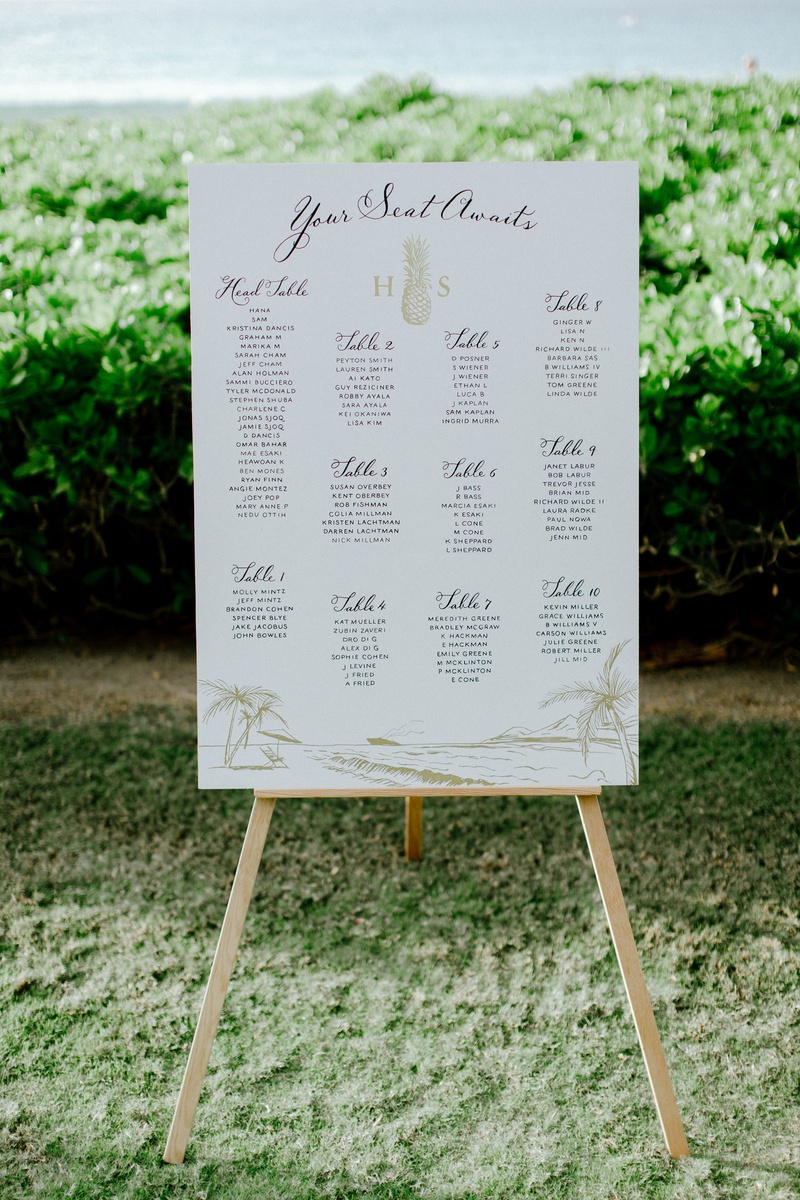 Your Seat Awaits
H S
Head Table
HANA
SAM
KRISTINA DANCIS
GRAHAM M
MARIKA M
SARAH CHAM
JEFF CHAM
ALAN HOLMAN
SAMMI BUCCIERO
TYLER MCDONALD
STEPHEN SHUBA
CHARLENE C
JONAS SJOQ
JAMIE SJOQ
D DANCIS
OMAR BAHAR
MAE ESAKI
HEAWOAN K
BEN MONES
RYAN FINN
ANGIE MONTEZ
JOEY POP
MARY ANNE P
NEDU OTTIH
Table 1
MOLLY MINTZ
JEFF MINTZ
BRANDON COHEN
SPENCER BLYE
JAKE JACOBUS
JOHN BOWLES
Table 2
PEYTON SMITH
LAUREN SMITH
AI KATO
GUY REZICINER
ROBBY AYALA
SARA AYALA
KEI OKANIWA
LISA KIM
Table 3
SUSAN OVERBEY
KENT OBERBEY
ROB FISHMAN
COLIA MILLMAN
KRISTEN LACHTMAN
DARREN LACHTMAN
NICK MILLMAN
Table 4
KAT MUELLER
ZUBIN ZAVERI
DRO DI G
ALEX DI G
SOPHIE COHEN
J LEVINE
J FRIED
A FRIED
Table 5
D POSNER
S WIENER
J WIENER
ETHAN L
LUCA B
J KAPLAN
SAM KAPLAN
INGRID MURRA
Table 6
J BASS
R BASS
MARCIA ESAKI
K ESAKI
L CONE
M CONE
K SHEPPARD
L SHEPPARD
Table 7
MEREDITH GREENE
BRADLEY MCGRAW
K HACKMAN
E HACKMAN
EMILY GREENE
M MCKLINTON
P MCKLINTON
E CONE
Table 8
GINGER W
LISA N
KEN N
RICHARD WILDE III
BARBARA SAS
B WILLIAMS IV
TERRI SINGER
TOM GREENE
LINDA WILDE
Table 9
JANET LABUR
BOB LABUR
TREVOR JESSE
BRIAN MID
RICHARD WILDE II
LAURA RADKE
PAUL NOWA
BRAD WILDE
JENN MID
Table 10
KEVIN MILLER
GRACE WILLIAMS
B WILLIAMS V
CARSON WILLIAMS
JULIE GREENE
ROBERT MILLER
JILL MID